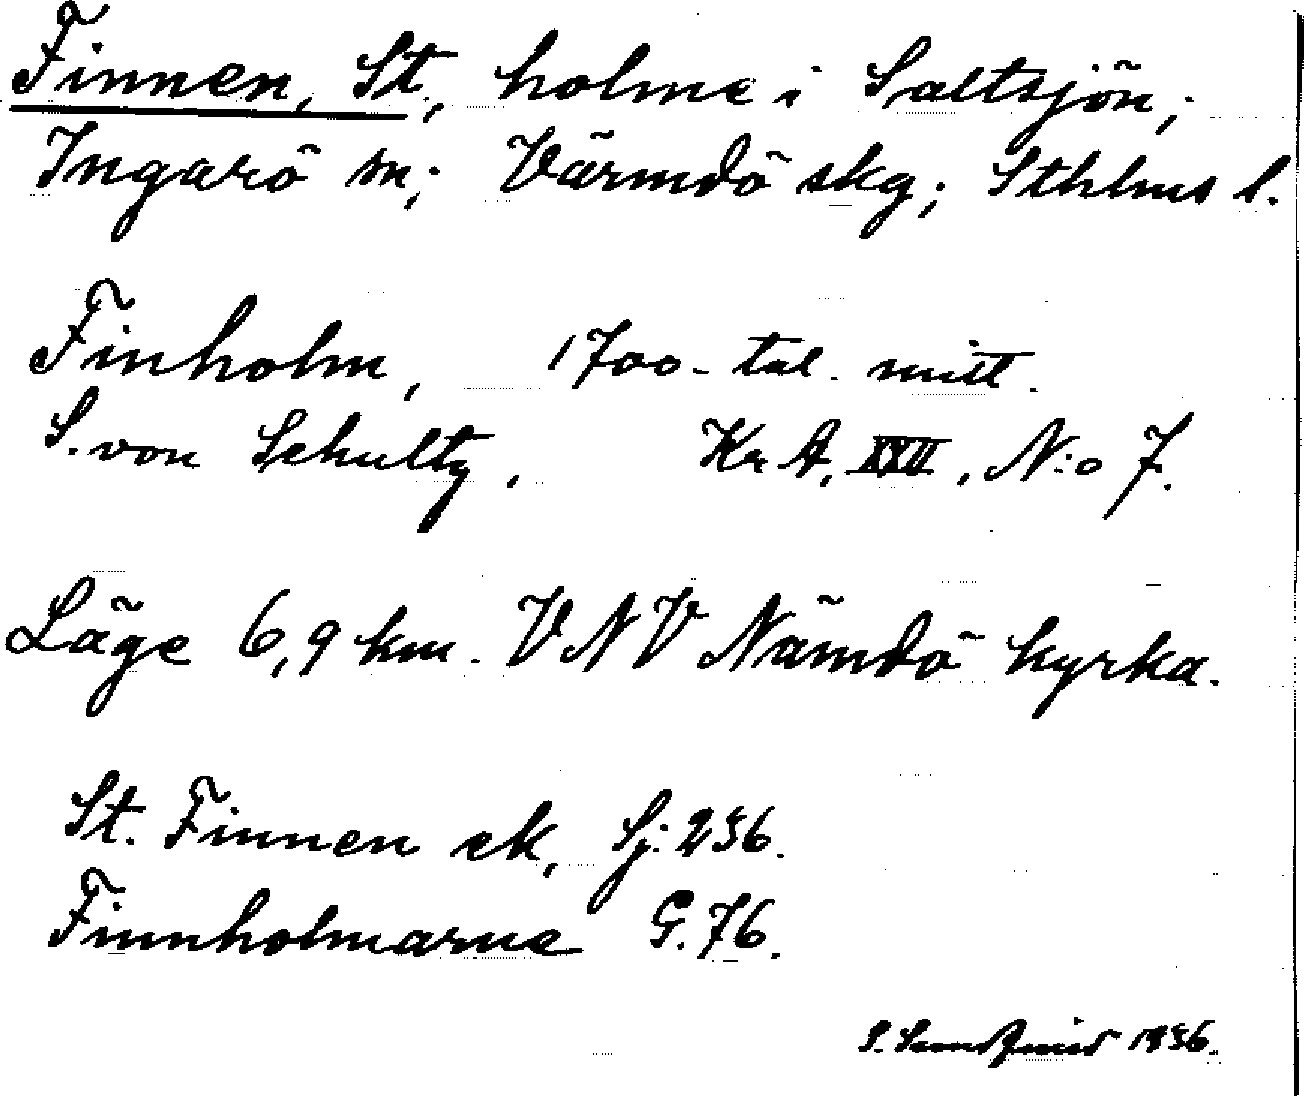 Finnen, St, holme i Saltsjön;
Ingarö sn; Värmdö skg; Sthlms l.
Finholm, 1700-tal. mitt.
S. von Schultz, Kr A, XXII, N:o 7.
Läge 6,9 km. VNV Nämdö kyrka.
St. Finnen ek, Sj: 236.
Finnholmarne G. 76.
1936.